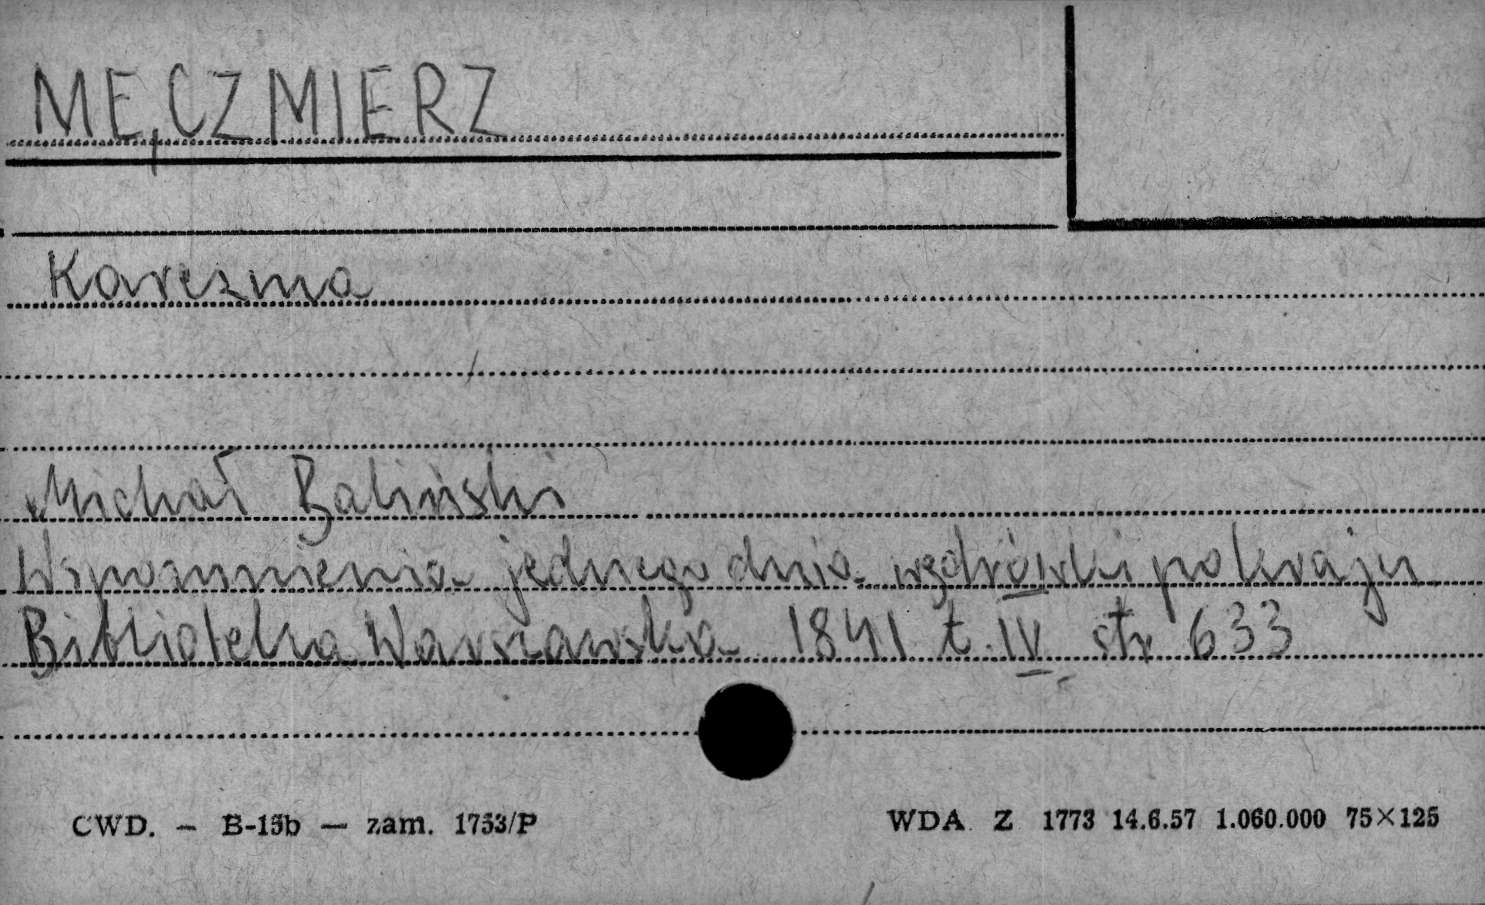 MĘĆMIERZ
Karczma
Michał Baliński
Wspomnienia jednego dnia wędrówki po kraju
Biblioteka Warszawska 1841 t. IV str 633
CWD. — B-15b — zam. 1753/P
WDA Z 1773 14.6.57 1.060.000 75×125